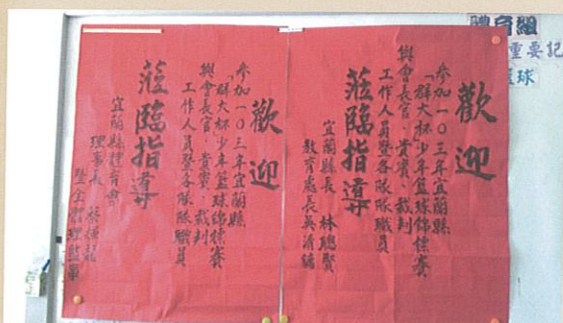 體育組
重要記
籃球
歡迎
參加一〇三年宜蘭縣
「群大杯少年籃球錦標賽
與會長官、貴賓、裁判
工作人員暨各隊隊職員
蒞臨指導
宜蘭縣長 林聰賢
教育處長吳清鏞
歡迎
參加一〇三年宜蘭縣
「群大杯少年籃球錦標賽
與會長官、貴賓、裁判
工作人員暨各隊隊職員
蒞臨指導
宜蘭縣體育會
理事長 蔡
暨全體理監事